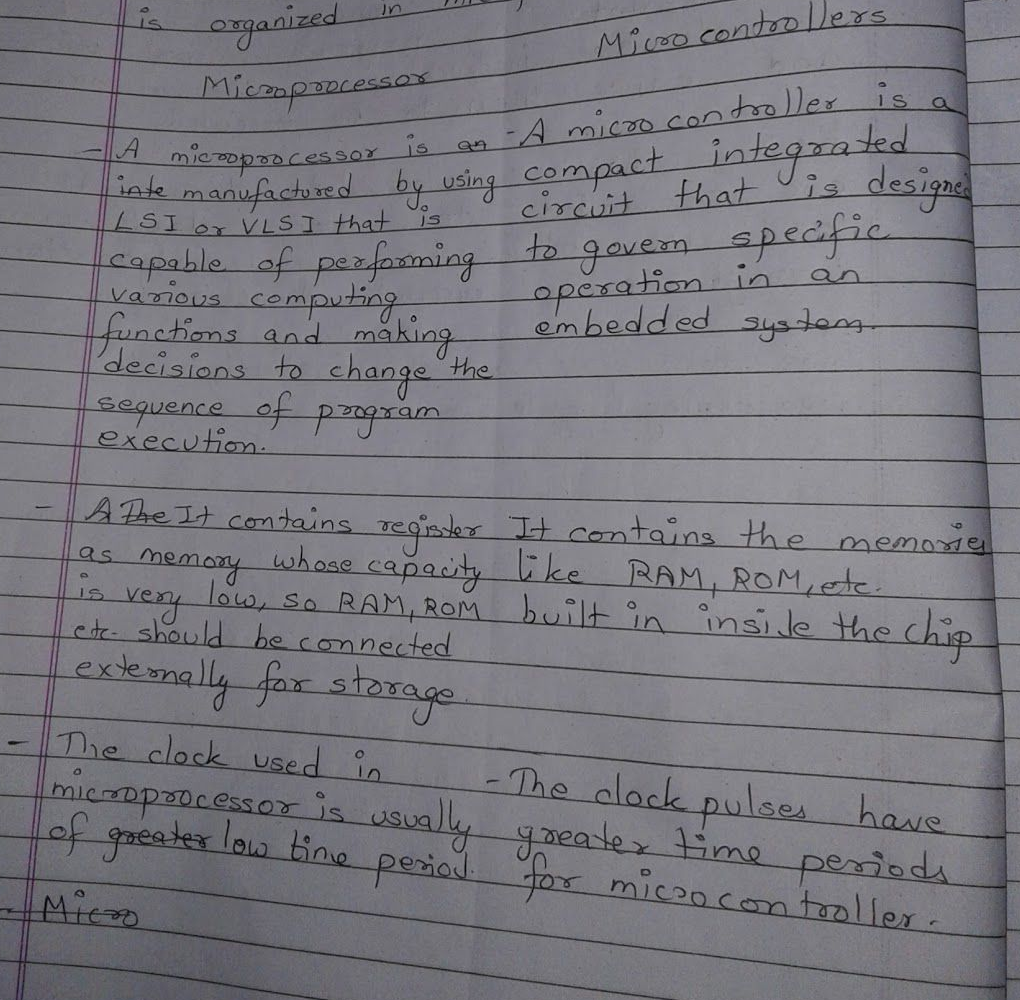 is organized in
Microprocessor
Microcontrollers
- A microprocessor is an
inte manufactured by using
LSI or VLSI that is
capable of performing
various computing
functions and making
decisions to change the
sequence of program
execution.
- A microcontroller is a
compact integrated
circuit that is designed
to govern specific
operation in an
embedded system.
- A The It contains register
as memory whose capacity
is very low, so RAM, ROM
etc. should be connected
externally for storage.
It contains the memories
like RAM, ROM, etc.
built in inside the chip
- The clock used in
microprocessor is usually
of greater low time period.
- The clock pulses have
greater time periods
for microcontroller.
- Micro